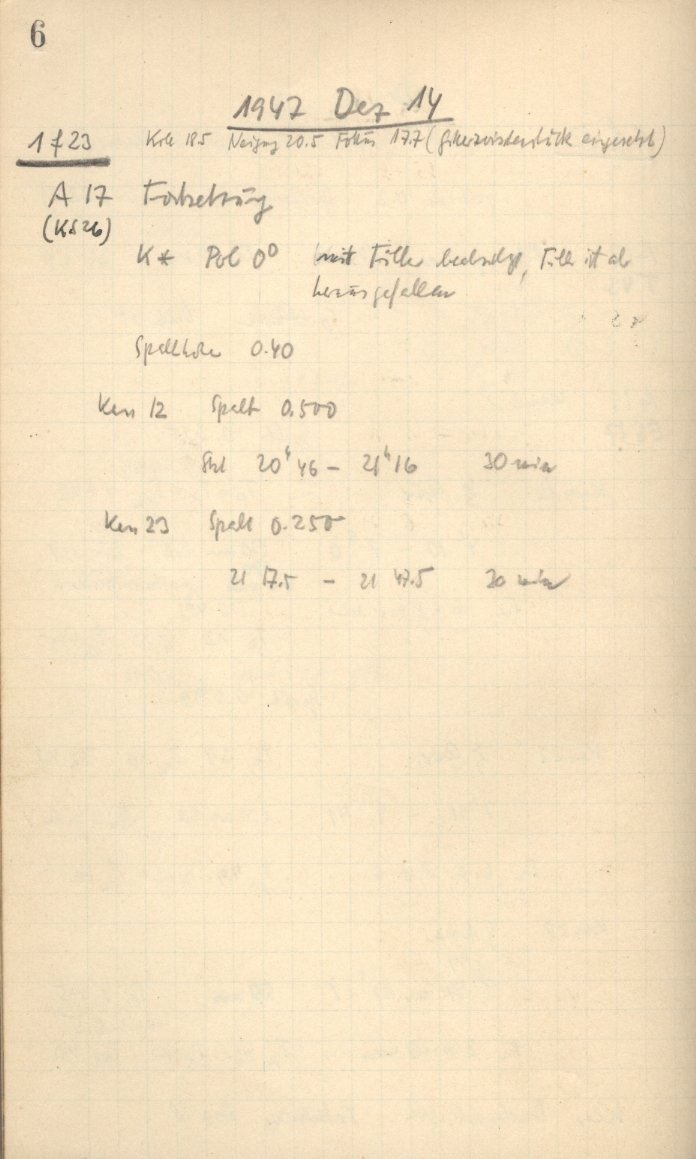 6
1947 Dez 14
1 f 23 Keil 18.5 Neigung 20.5 Fokus 17.7 (Gitterzwischenstück eingesetzt)
A 17 Fortsetzung
(KS26)
K* Pol 0° mit Filter, Filter ist ab
herausgefallen
Spalthöhe 0.40
Ken 12 Spalt 0.500
20h 46 – 21h 16 30 min
Ken 23 Spalt 0.250
21 17.5 – 21 47.5 30 min